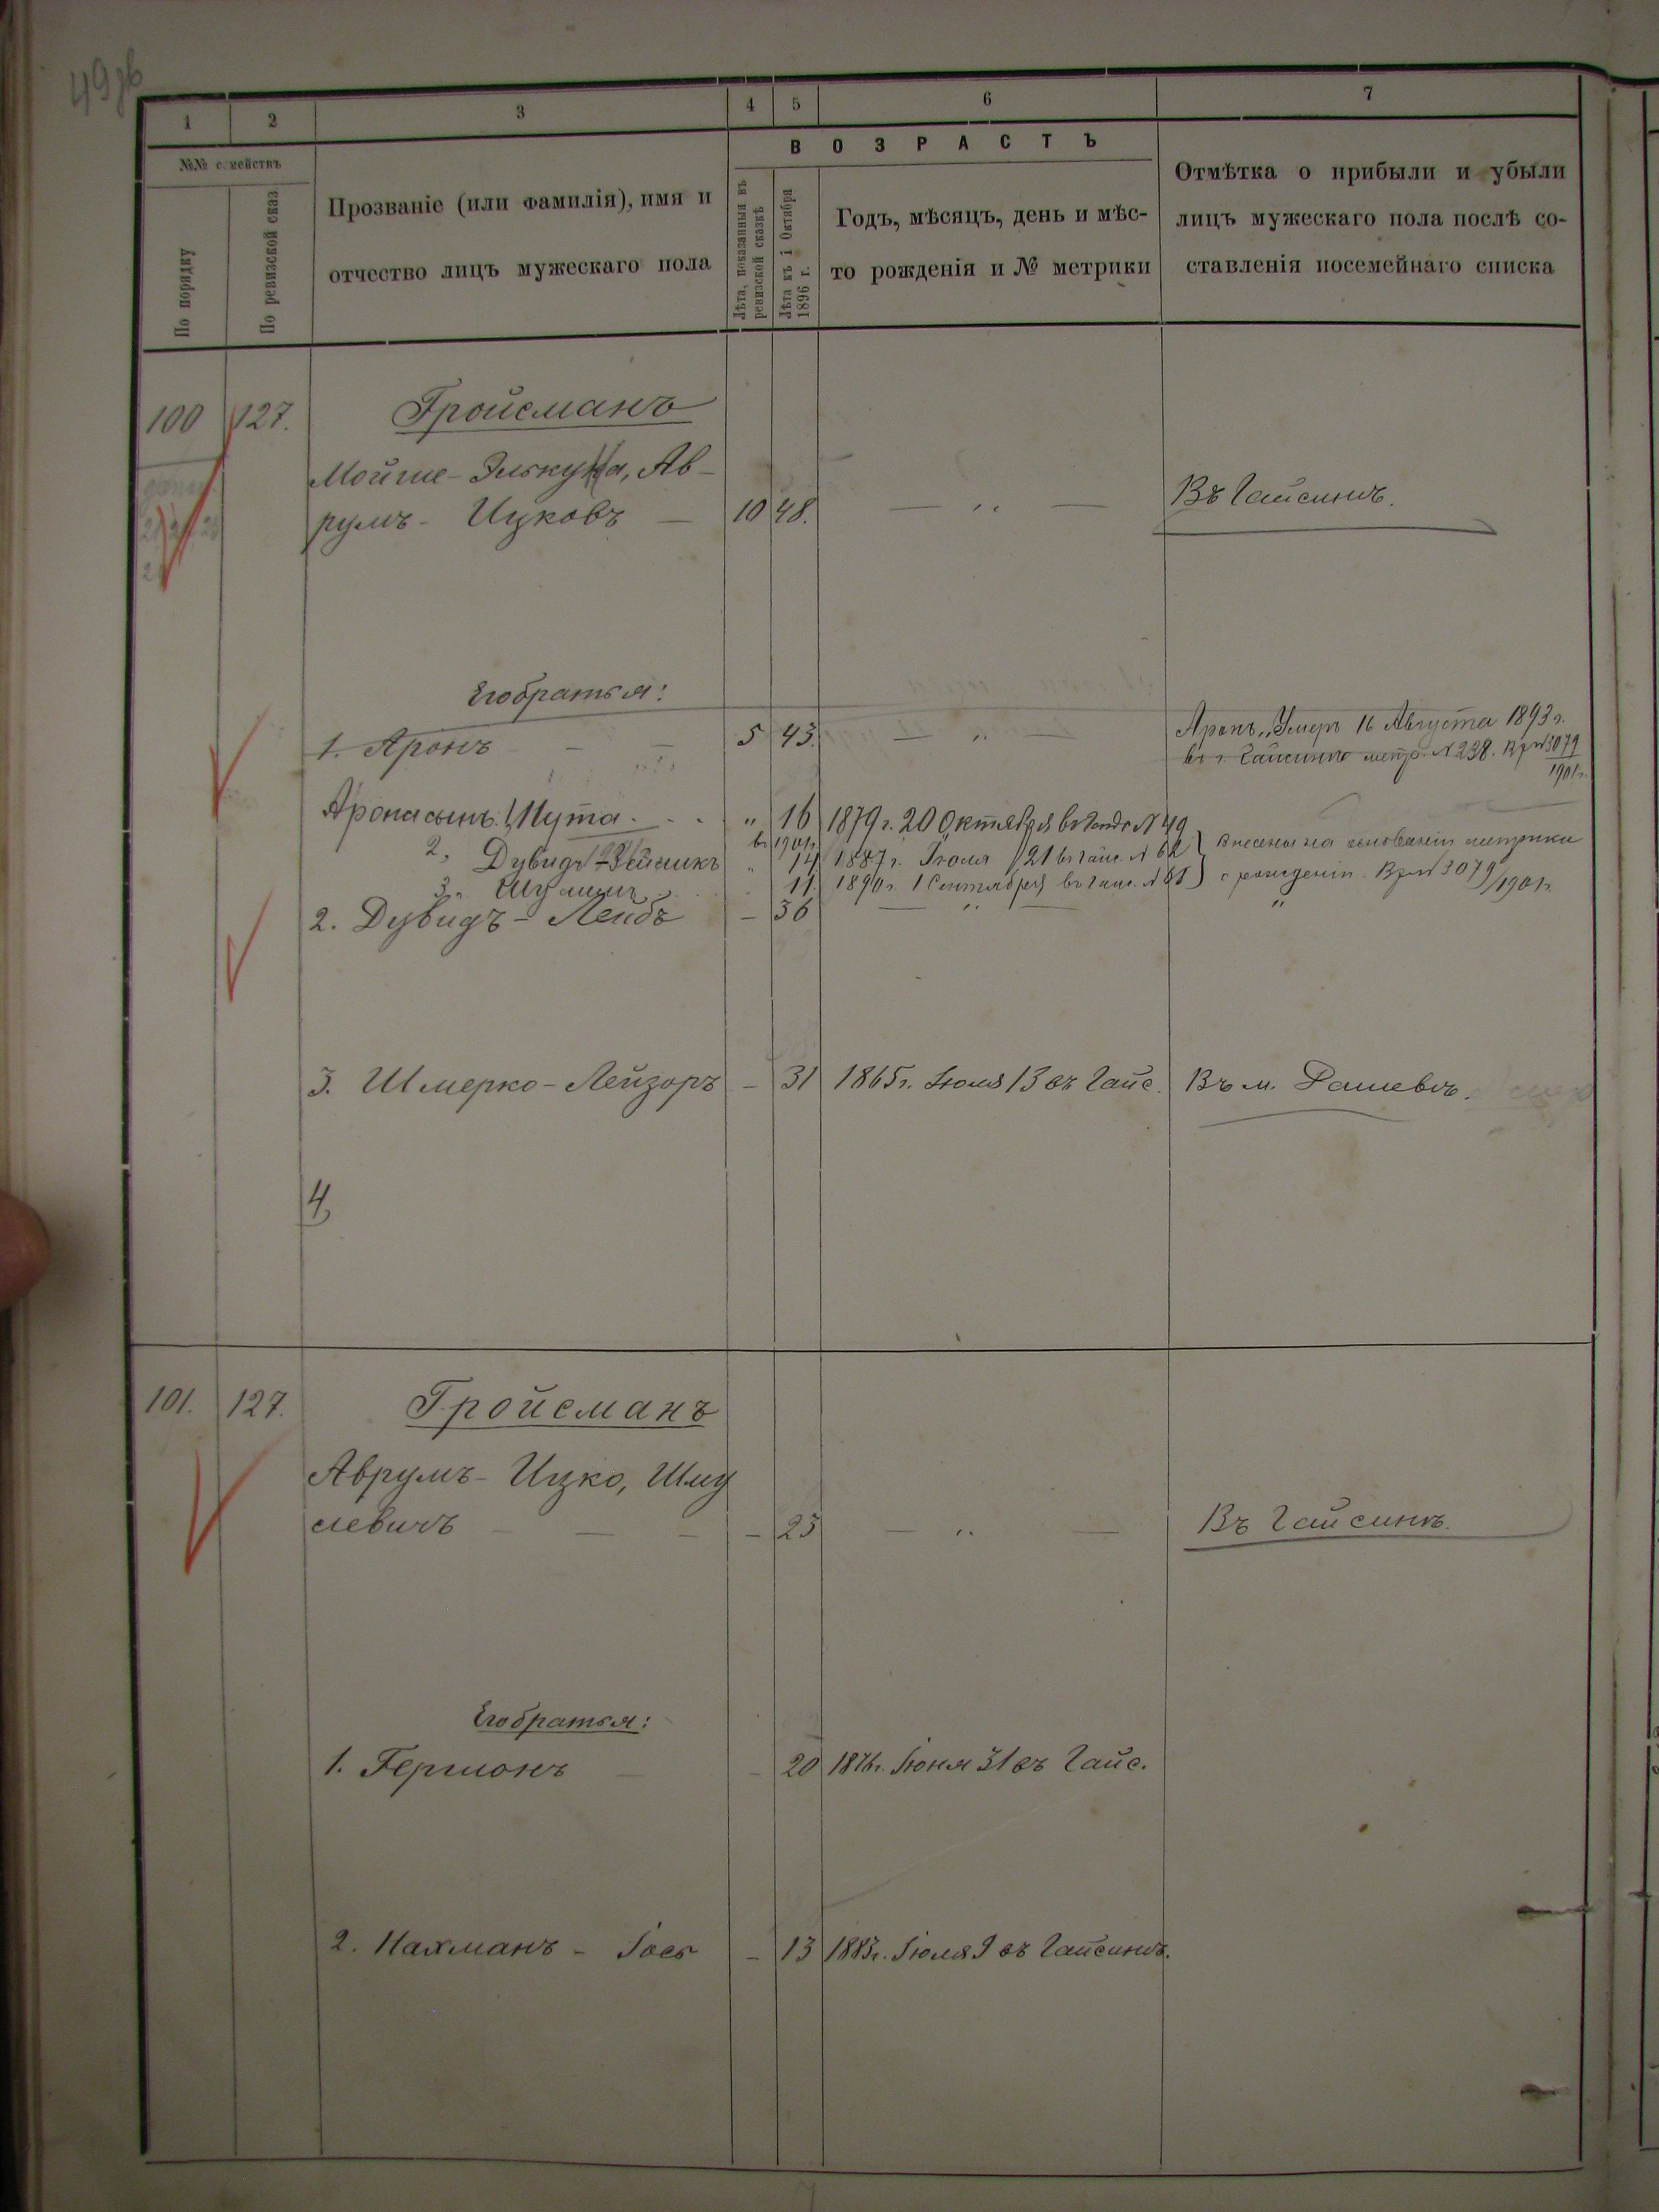 49
1 2 3 4 5 6 7
№№ семействъ
По порядку
По ревизской сказ.
Прозваніе (или фамилія), имя и
отчество лицъ мужескаго пола
ВОЗРАСТЪ
Лѣта, показанныя въ
ревизской сказкѣ
Лѣта къ 1 Октября
1896 г.
Годъ, мѣсяцъ, день и мѣс-
то рожденія и № метрики
Отмѣтка о прибыли и убыли
лицъ мужескаго пола послѣ со-
ставленія посемейнаго списка
100 127. Гройсманъ
Мойше- Элькуна, Ав-
румъ - Ицковъ — 10 48. — " — Въ Гайсинѣ.
Его братья:
1. Аронъ — 5 43. — " — Аронъ, Умеръ 16 Августа 1893 г.
въ г. Гайсинѣ метр. № 238. Вр № 3079
1901 г.
Арона сынъ: 1, Мута. . . " 16 1879 г. 20 Октября въ № 49
въ 1901 г.
2, Дувидъ " 14 1887 г. Іюля 21 въ Гайс. № 62 внесены на основаніи метрики
3, 11. 1890 г. 1 Сентября въ Гайс. о рожденіи. Вр № 3079/1901 г.
2. Дувидъ - Лейбъ — 36 — " — "
3. Шмерко - Лейзоръ — 31 1865 г. Іюля 13 въ Гайс. Въ м. Дашевѣ.
4,
101. 127. Гройсманъ
Аврумъ - Ицко, Шму
левичъ — — — 25 — " — Въ Гайсинѣ.
Его братья:
1. Гершонъ — — 20 1876 г. Іюня 31 въ Гайс.
2. Нахманъ - Іось — 13 1883 г. Іюля 9 въ Гайсинѣ.